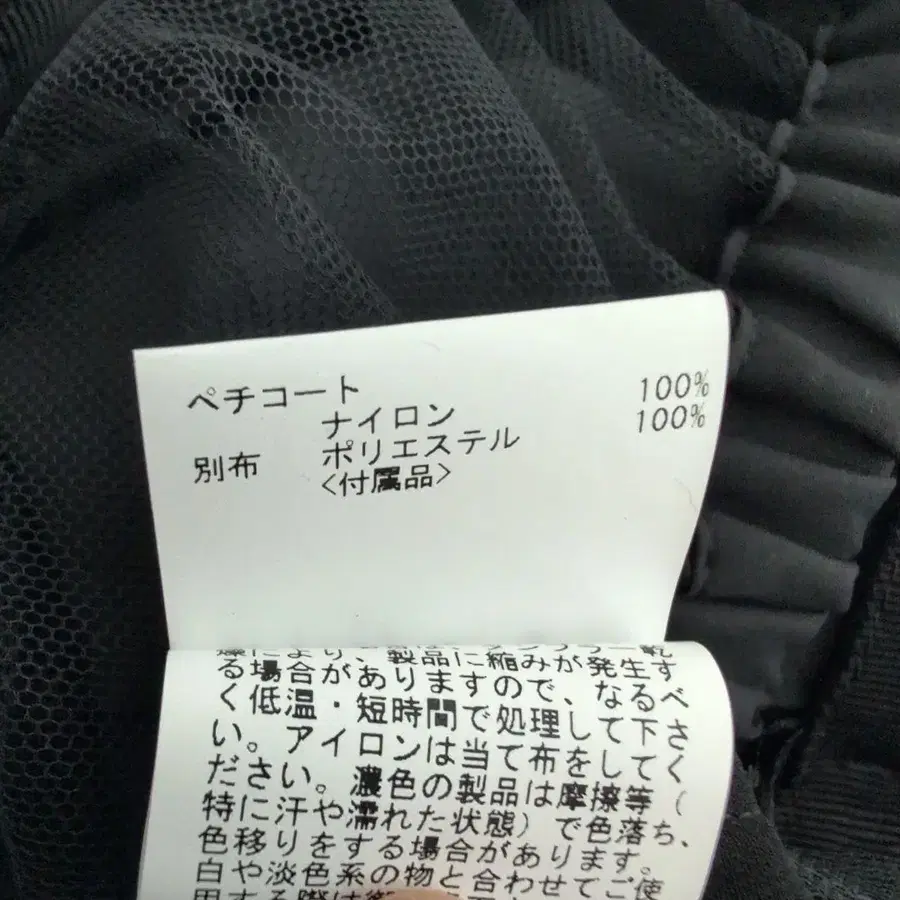 ペチコート
ナイロン 100%
別布 ポリエステル 100%
<付属品>
り、製品に縮みが発生す
る場合がありますので、なるべ
く低温・短時間で処理して下さ
い。アイロンは当て布をしてく
ださい。濃色の製品は摩擦等(
特に汗や濡れた状態)で色落ち、
色移りをする場合があります。
白や淡色系の物と合わせてご使
用する際は